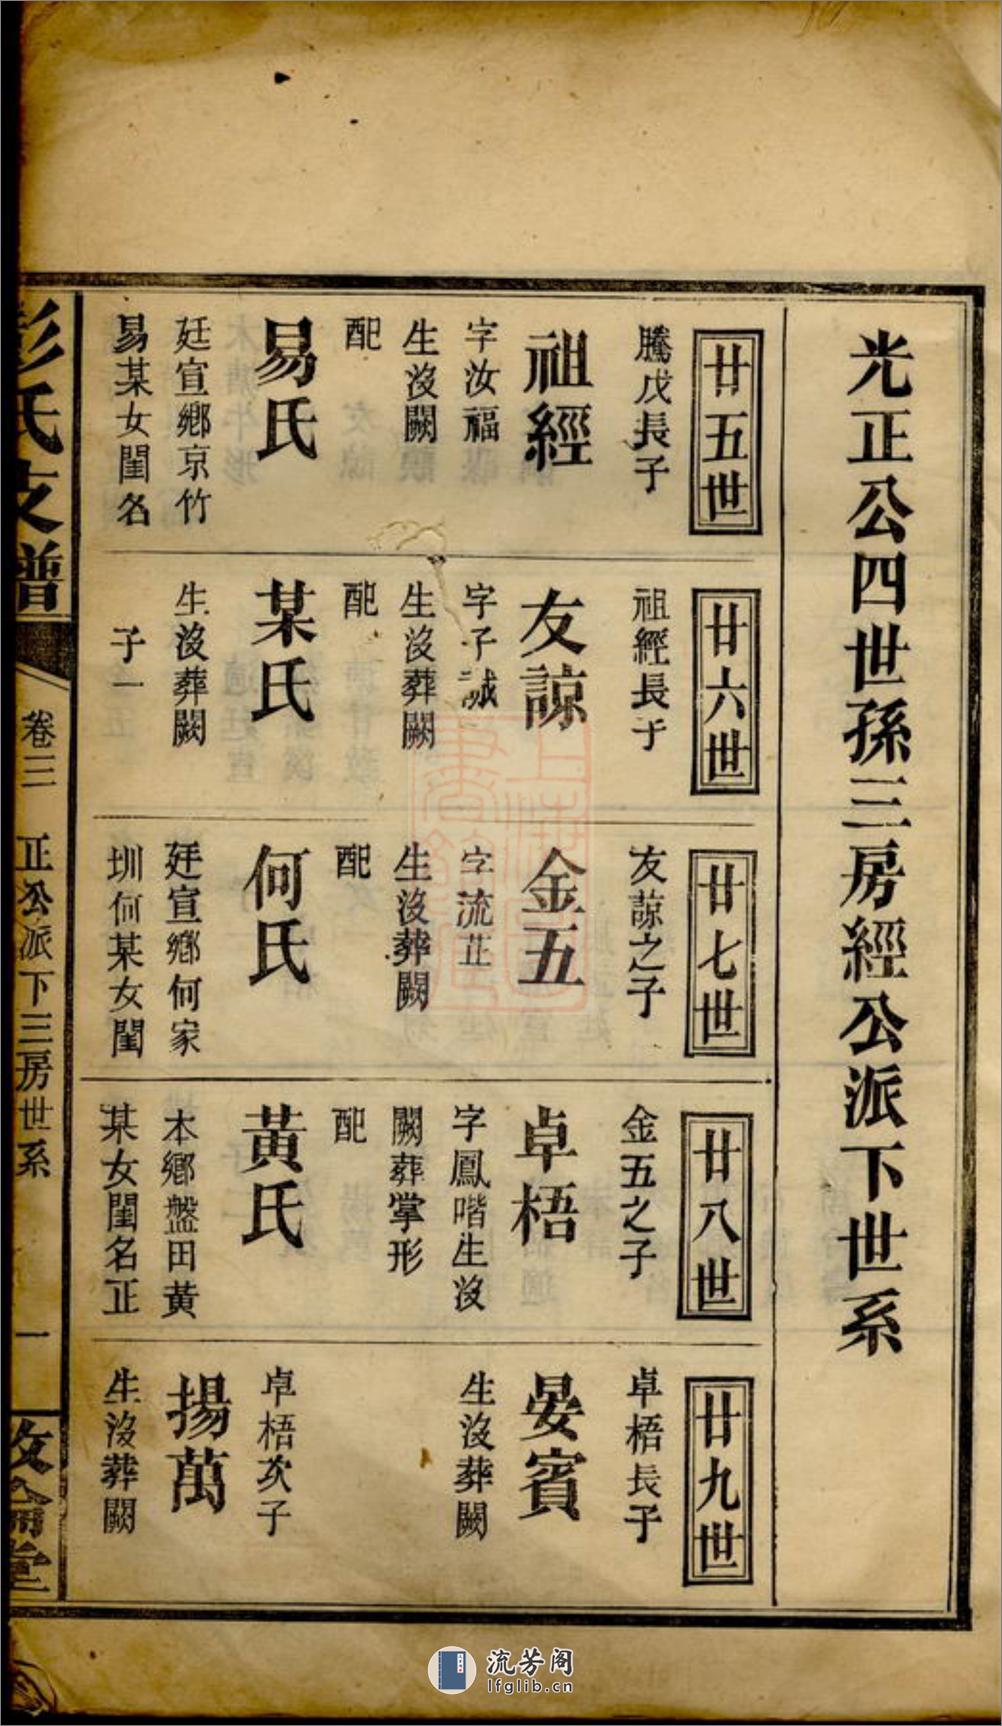 光正公四世孫三房經公派下世系
廿五世
騰戊長子
祖經
字汝福
生沒闕
配
易氏
廷宣鄉京竹
易某女閨名
廿六世
祖經長子
友諒
字子誠
生沒葬闕
配
某氏
生沒葬闕
子一
廿七世
友諒之子
金五
字流芷
生沒葬闕
配
何氏
廷宣鄉何家
圳何某女閨
廿八世
金五之子
卓梧
字鳳喈生沒
闕葬掌形
配
黃氏
本鄉盤田黃
某女閨名正
廿九世
卓梧長子
晏賓
生沒葬闕
卓梧次子
揚萬
生沒葬闕
彭氏支譜
卷三
正公派下三房世系
一
攸倫堂
流芳阁
lfglib.cn